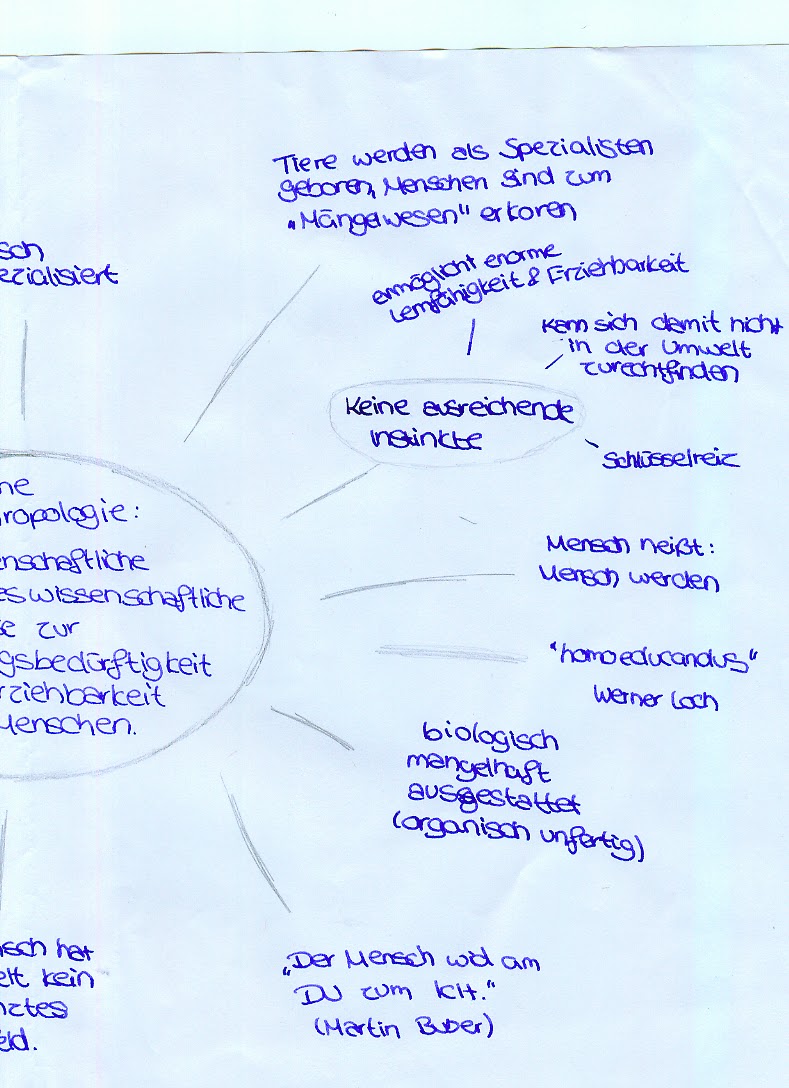 Tiere werden als Spezialisten
geboren, Menschen sind zum
„Mängelwesen" erkoren
sch
ezialisiert
ermöglicht enorme
Lernfähigkeit & Erziehbarkeit
Kann sich damit nicht
in der Umwelt
zurechtfinden
Keine ausreichende
Instinkte
Schlüsselreiz
ne
ropologie:
enschaftliche
eswissenschaftliche
e zur
gsbedürftigkeit
rziehbarkeit
Menschen.
Mensch heißt:
Mensch werden
"homo educandus"
Werner Loch
biologisch
mangelhaft
ausgestattet
(organisch unfertig)
„Der Mensch wid am
DU zum ICH."
(Martin Buber)
nsch hat
elt kein
nztes
eld.